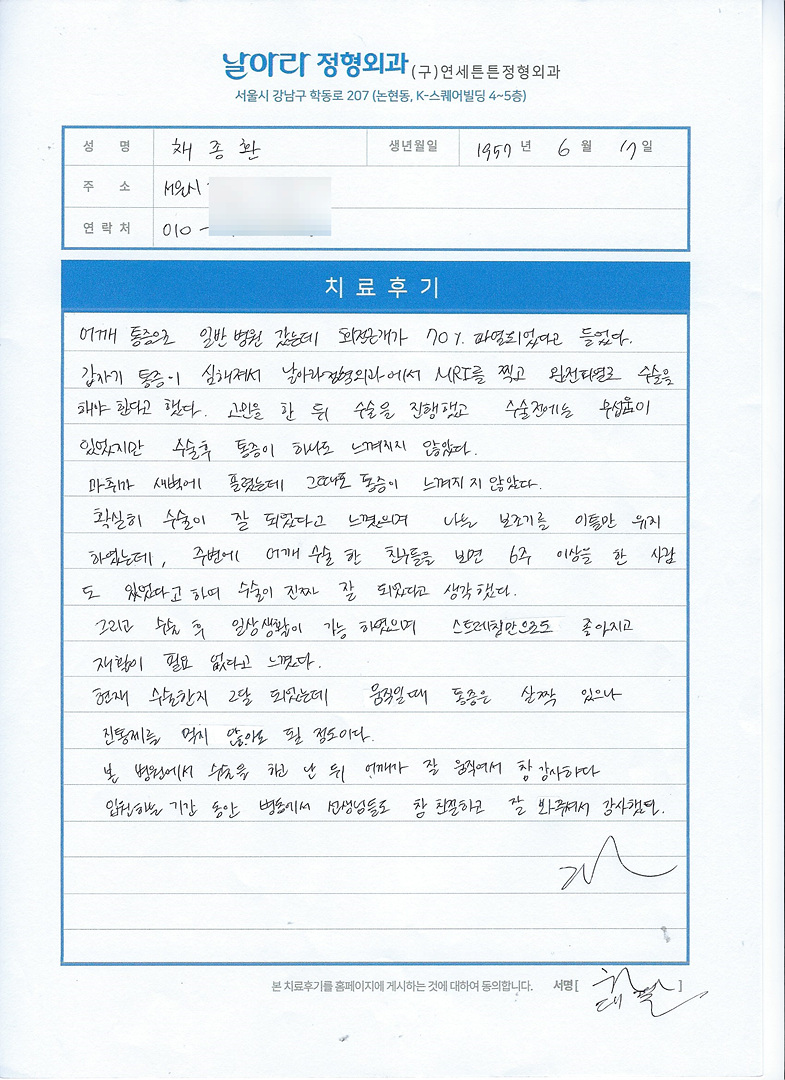 날아라 정형외과 (구)연세튼튼정형외과
서울시 강남구 학동로 207 (논현동, K-스퀘어빌딩 4~5층)
성 명 채종환 생년월일 1957 년 6 월 17 일
주 소 서울시
연락처 010 -
치료후기
어깨 통증으로 일반 병원 갔는데 회전근개가 70% 파열되었다고 들었다.
갑자기 통증이 심해져서 날아라정형외과에서 MRI를 찍고 완전파열로 수술을
해야 한다고 했다. 고민을 한 뒤 수술을 진행했고 수술전에는 무서움이
있었지만 수술후 통증이 하나도 느껴지지 않았다.
마취가 새벽에 풀렸는데 그때도 통증이 느껴지지 않았다.
확실히 수술이 잘 되었다고 느꼈으며 나는 보조기를 이틀만 유지
하였는데, 주변에 어깨 수술 한 친구들을 보면 6주 이상을 한 사람
도 있었다고 하며 수술이 진짜 잘 되었다고 생각했다.
그리고 수술 후 일상생활이 가능 하였으며 스트레칭만으로도 좋아지고
재활이 필요 없다고 느꼈다.
현재 수술한지 2달 되었는데 움직일때 통증은 살짝 있으나
진통제를 먹지 않아도 될 정도이다.
본 병원에서 수술을 하고 난 뒤 어깨가 잘 움직여서 참 감사하다
입원하는 기간 동안 병동에서 선생님들도 참 친절하고 잘 봐주셔서 감사했다.
본 치료후기를 홈페이지에 게시하는 것에 대하여 동의합니다. 서명 [ ]